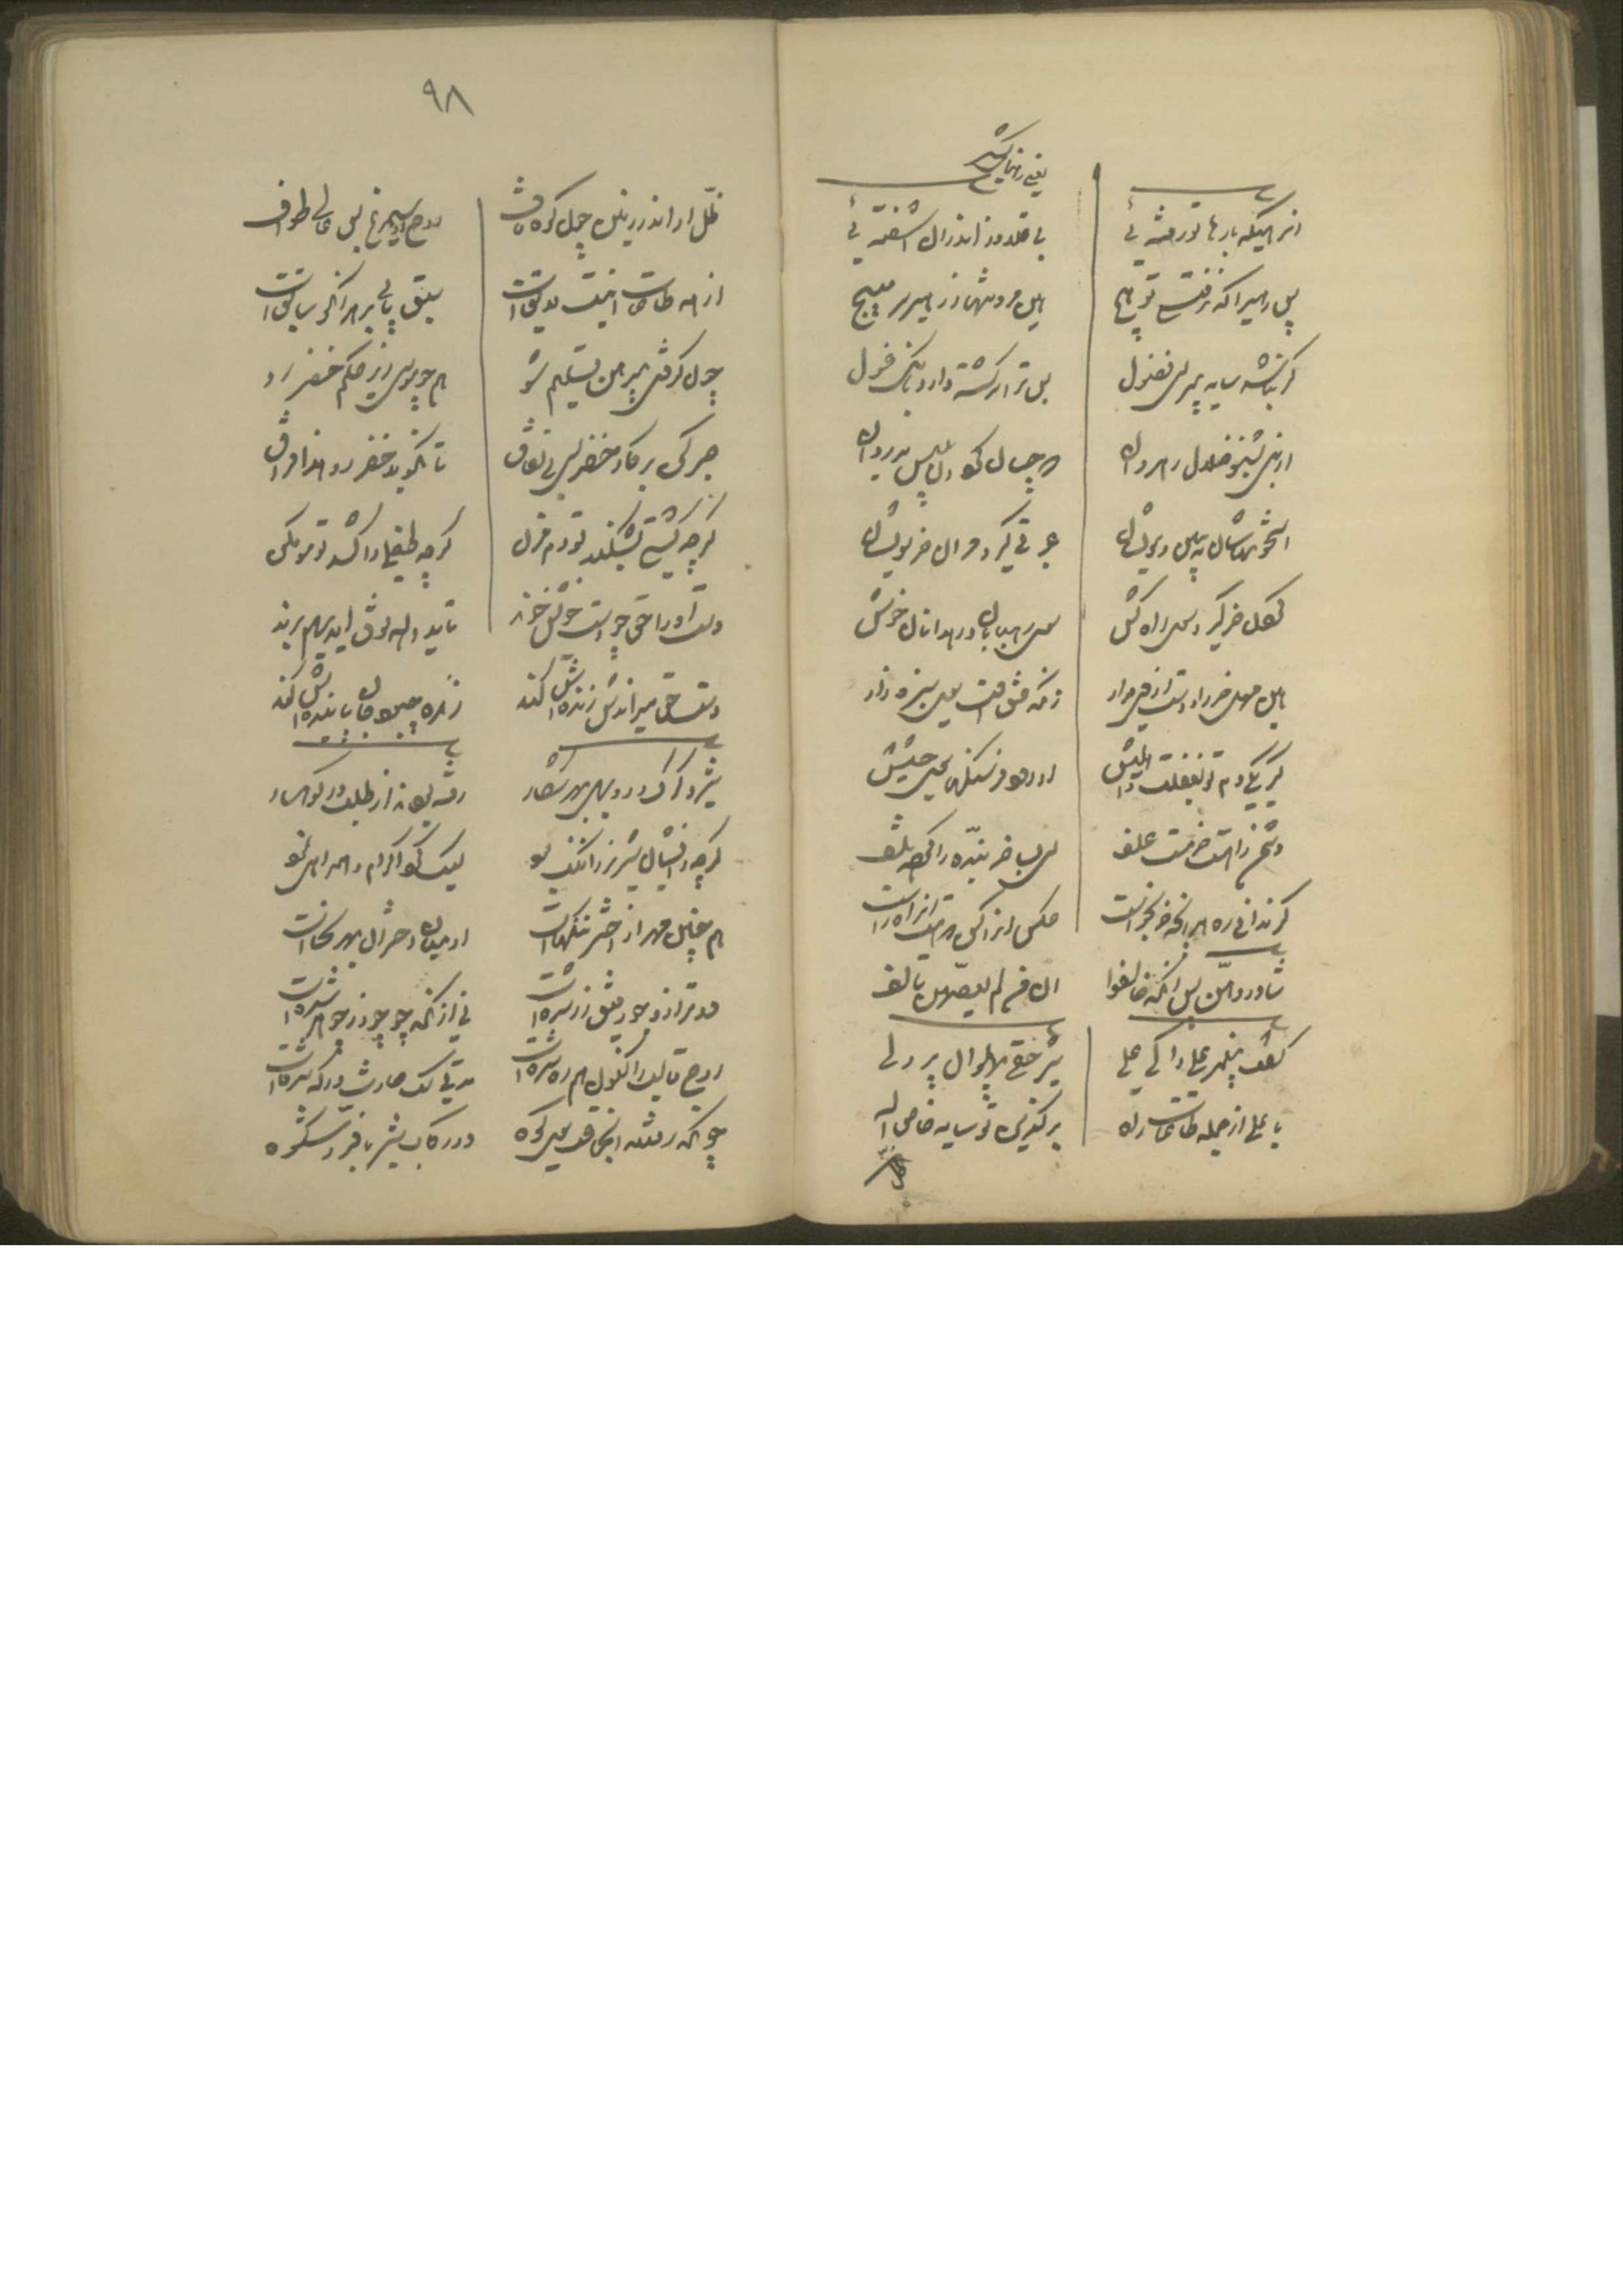 یعنی راهنمایش
اندر اینکه بارها تو رفته ئی بی قلاوز اندران آشفته ئی
پس رهیرا که نرفتستی تو هیچ هین مرو تنها ز رهبر سر مپیچ
گر نباشد سایه پیر ای فضول پس ترا سرگشته دارد بانک غول
از نبی بشنو ضلال رهروان که چسان کرد آن بلیس بدروان
استخوانهاشان ببین و مویشان عبرتی گیر و مران خر سویشان
گردن خر گیر و سوی راه کش سوی رهبانان و رهدانان خوش
هین مهل خر را و دست از وی مدار زانکه عشق اوست سوی سبزه زار
گر یکی دم تو بغفلت واهلیش او رود فرسنگها سوی حشیش
دشمن راهست خر مست علف ای بسا خر بنده را کرده تلف
گر ندانی ره هر آنچه خر بخواست عکس آن کن که هست آن راه راست
شاوروهن پس آنگه خالفوا ان من لم یعصهن تالف
گفت پیغمبر علی را کای علی شیر حقی پهلوان پردلی
یا علی از جمله طاعات راه برگزین تو سایه خاص اله
۹۸
ظل او اندر زمین چون کوه قاف روح او سیمرغ بس عالی طواف
از همه طاعات اینت لایق است سبق یابی بر هر آنکو سابق است
چون گرفتی پیر هین تسلیم شو هم چو موسی زیر حکم خضر رو
صبر کن بر کار خضر ای بی نفاق تا نگوید خضر رو هذا فراق
گرچه کشتی بشکند تو دم مزن گرچه طفلی را کشد تو مو مکن
دست او را حق چو دست خویش خواند تا ید الله فوق ایدیهم براند
دست حق میراندش زنده ش کند زنده چبود جان پاینده ش کند
شیر و گرگ و روبهی بهر شکار رفته بودند از طلب در کوهسار
گرچه زایشان شیر نر را ننگ بود لیک کرد اکرام و همراهی نمود
هم چنین مه را ز اختر ننگهاست او میان اختران بهر سخاست
در ترازو جو رفیق زر شده است نی از آنکه جو چو زر جوهر شده است
روح قالب را کنون هم ره شده است مدتی سگ حارث درگه شده است
چونکه رفتند آن جماعت سوی کوه در رکاب شیر با فر و شکوه